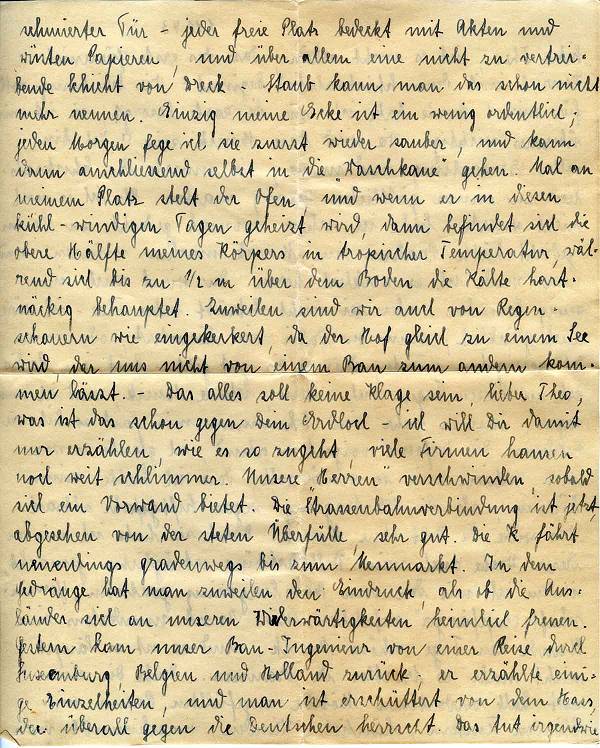 schmierter Tür – jeder freie Platz bedeckt mit Akten und
wüsten Papieren, und über allem eine nicht zu vertrei-
bende Schicht von Dreck – Staub kann man das schon nicht
mehr nennen. Einzig meine Ecke ist ein wenig ordentlich;
jeden Morgen fege ich sie zuerst wieder sauber, und kann
dann anschliessend selbst in die "Waschkaue" gehen. Mal an
meinem Platz steht der Ofen und wenn er in diesen
kühl-windigen Tagen geheizt wird, dann befindet sich die
obere Hälfte meines Körpers in tropischer Temperatur, wäh-
rend sich bis zu 1/2 m über dem Boden die Kälte hart-
näckig behauptet. Zuweilen sind wir auch von Regen-
schauern wie eingekerkert, da der Hof gleich zu einem See
wird, der uns nicht von einem Bau zum andern kom-
men lässt. – Das alles soll keine Klage sein, lieber Theo,
was ist das schon gegen Dein Erdloch – ich will Dir damit
nur erzählen, wie es so zugeht, viele Firmen hausen
noch weit schlimmer. Unsere "Herren" verschwinden, sobald
sich ein Vorwand bietet. Die Strassenbahnverbindung ist jetzt,
abgesehen von der steten Überfülle, sehr gut. Die K fährt
neuerdings gradenwegs bis zum Neumarkt. In dem
Gedränge hat man zuweilen den Eindruck, als ob die Aus-
länder sich an unseren Widerwärtigkeiten heimlich freuen.
Gestern kam unser Bau-Ingenieur von einer Reise durch
Luxemburg, Belgien und Holland zurück; er erzählte eini-
ge Einzelheiten, und man ist erschüttert von dem Hass,
der überall gegen die Deutschen herrscht. Das tut irgendwie